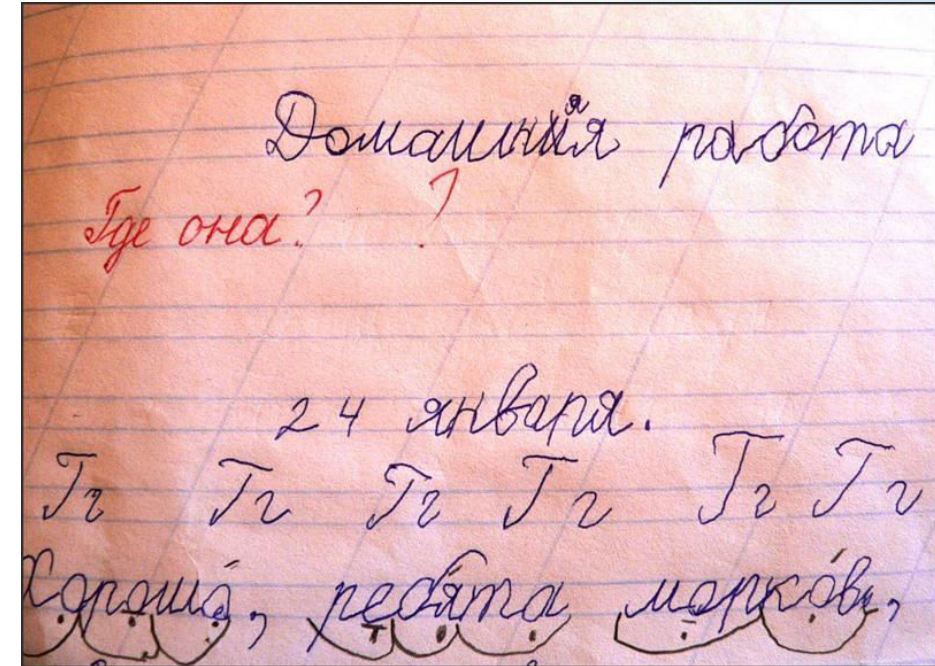 Домашняя работа
Где она? ?
24 января.
Гг Гг Гг Гг Гг Гг
Хорошо́, ребя́та морко́вь,